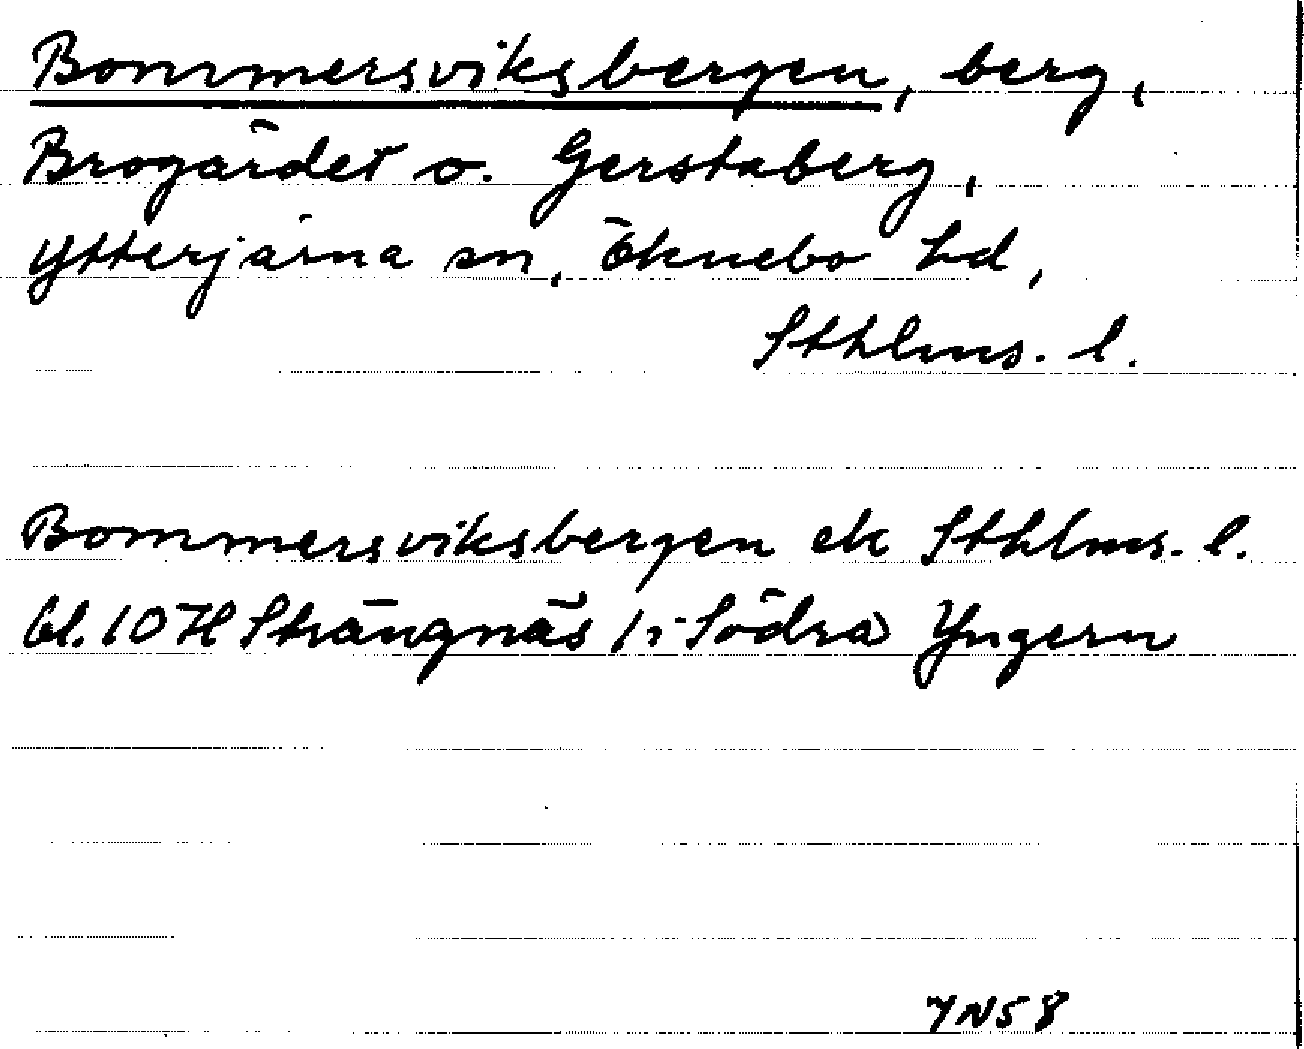 Bommersviksbergen, berg,
Brogärdet o. Gerstaberg,
Ytterjärna sn, Öknebo hd,
Sthlms. l.
Bommersviksbergen ek Sthlms. l.
bl. 10 H Strängnäs Södra Yngern
YN58